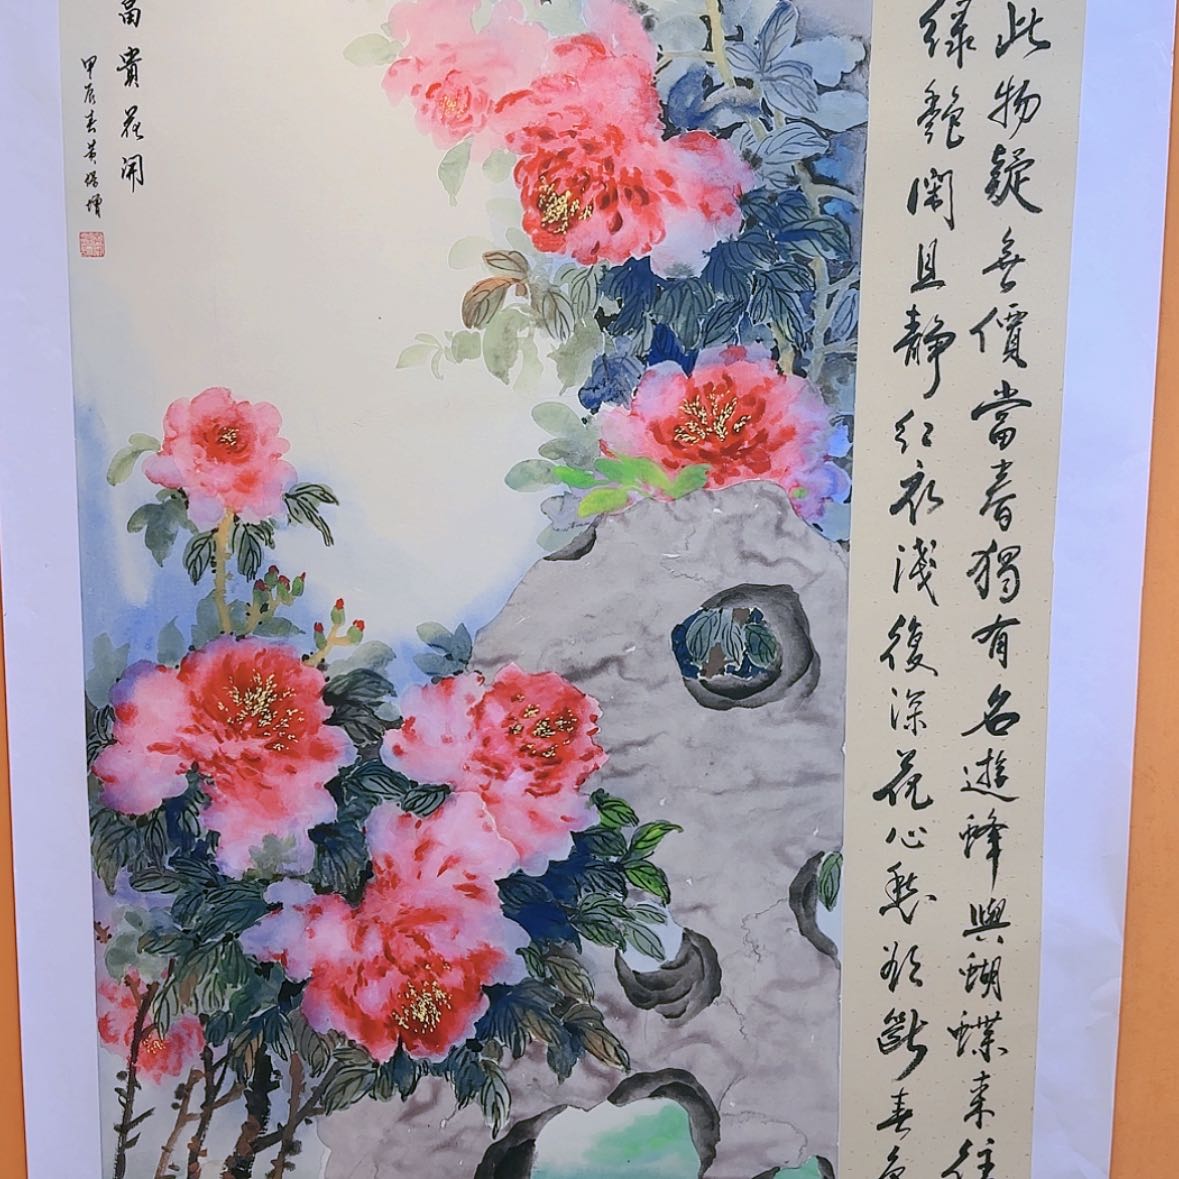 此物疑無價當春獨有名遊蜂與蝴蝶來往
綠艷閑且靜紅衣淺復深花心愁欲斷春色
富貴花開
甲辰春黃